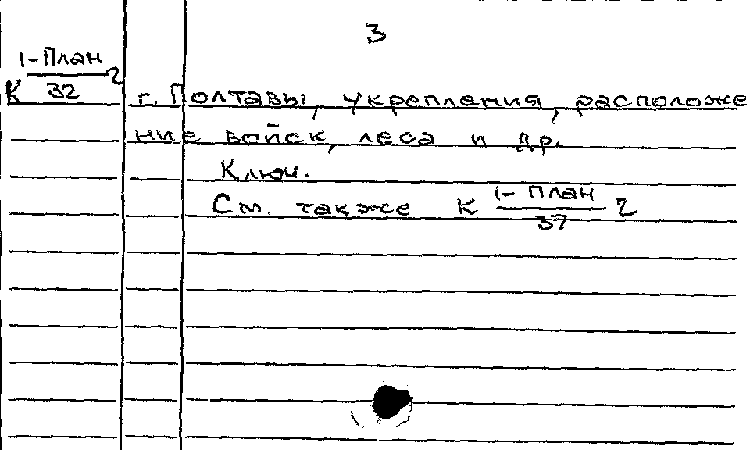 3
К 1-План/32 2
г. Полтавы, укрепления, расположе
ние войск, леса и др.
Ключ.
См. также К 1-План/37 2